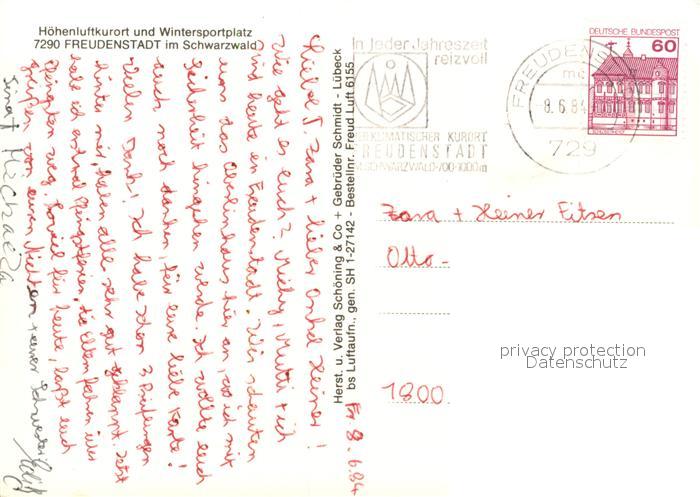 Höhenluftkurort und Wintersportplatz
7290 FREUDENSTADT im Schwarzwald
In jeder Jahreszeit
reizvoll
HEILKLIMATISCHER KURORT
FREUDENSTADT
SCHWARZWALD 700-1000m
FREUDENSTADT
mc
-8.6.84
729
DEUTSCHE BUNDESPOST
60
Herst. u. Verlag Schöning & Co + Gebrüder Schmidt - Lübeck
bs Luftaufn., gen. SH 1-27142 - Bestellnr. Freud Luft 6155
Fr 8.6.84
Liebe T. Zara + lieber Onkel Heiner!
Wie geht es euch? Michy, Mutti + ich
sind heute in Freudenstadt. Wir schauten
uns das Oberlinhaus hier an, wo ich mit
Sicherheit hingehen werde. Ich wollte euch
auch noch danken, für eure liebe Karte!
Vielen Dank! Ich habe schon 3 Prüfungen
hinter mir, haben alle sehr gut geklappt. Jetzt
habe ich erstmal Pfingstferien, die Eltern fahren über
Pfingsten weg. Soviel für heute, laßt euch
grüßen von euren Nichten + eurer Schwester
Sina + Michaela
Zara + Heiner Eitsen
Otto-
1800
privacy protection
Datenschutz